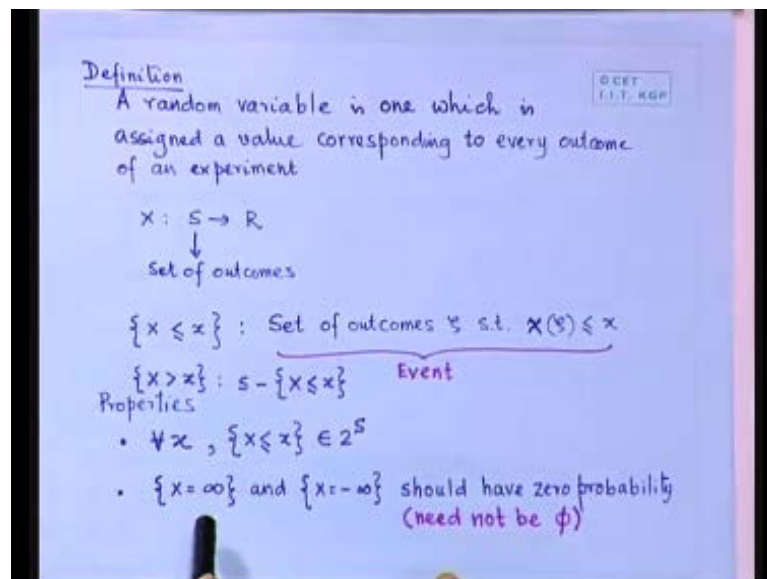 Definition
© CET
I.I.T. KGP
A random variable is one which is
assigned a value corresponding to every outcome
of an experiment
X : S → R
↓
Set of outcomes
{X ≤ x} : Set of outcomes ξ s.t. X(ξ) ≤ x
Event
{X > x} : S - {X ≤ x}
Properties
• ∀ x , {X ≤ x} ∈ 2^S
• {X = ∞} and {X = -∞} should have zero probability
(need not be φ)